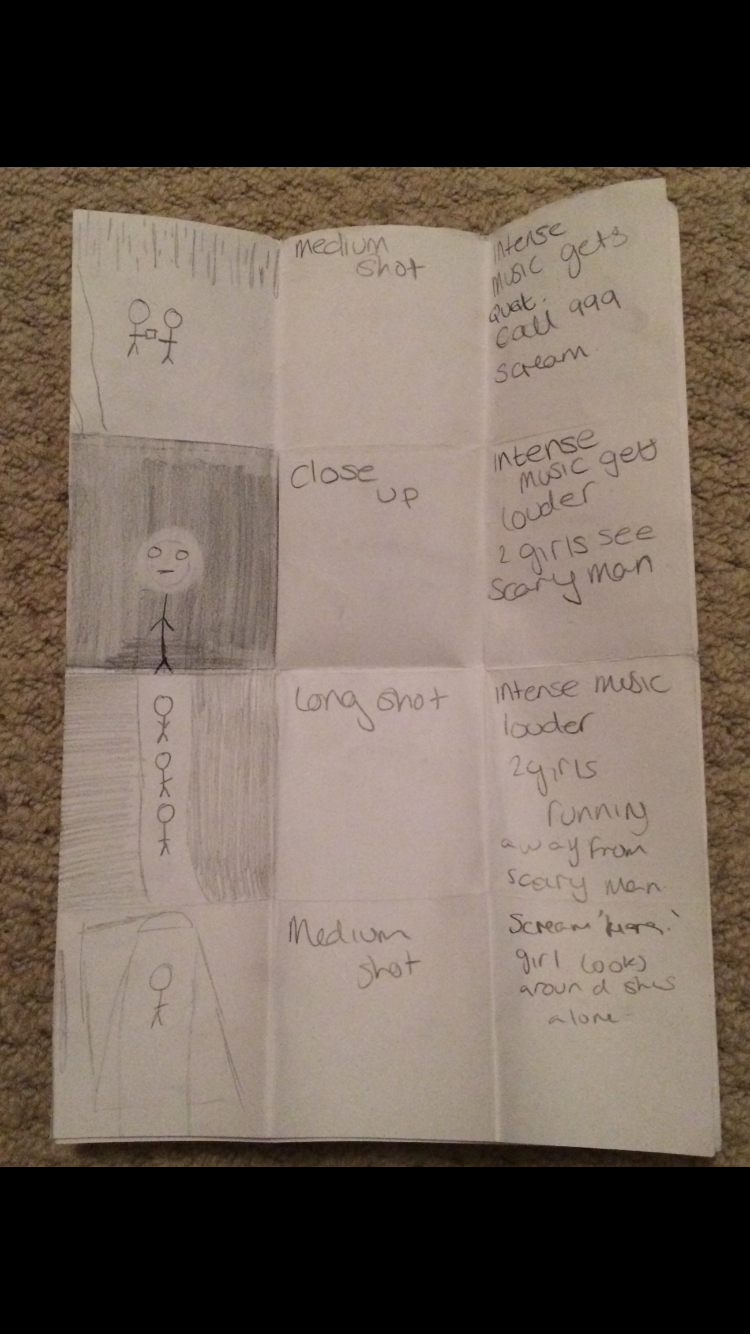 medium
shot
intense
music gets
quat.
call 999
scream
Close
up
intense
music gets
louder
2 girls see
scary man
Long shot
intense music
louder
2 girls
running
away from
scary man.
Medium
shot
Scream
girl looks
around shes
alone